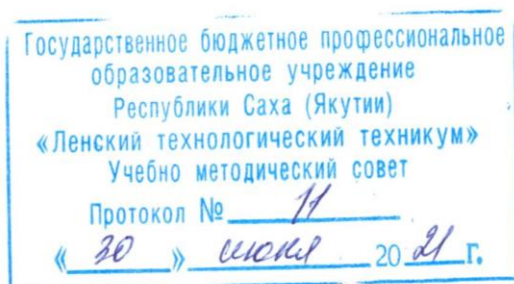 Государственное бюджетное профессиональное
образовательное учреждение
Республики Саха (Якутии)
«Ленский технологический техникум»
Учебно методический совет
Протокол № 11
« 30 » июня 20 21 г.